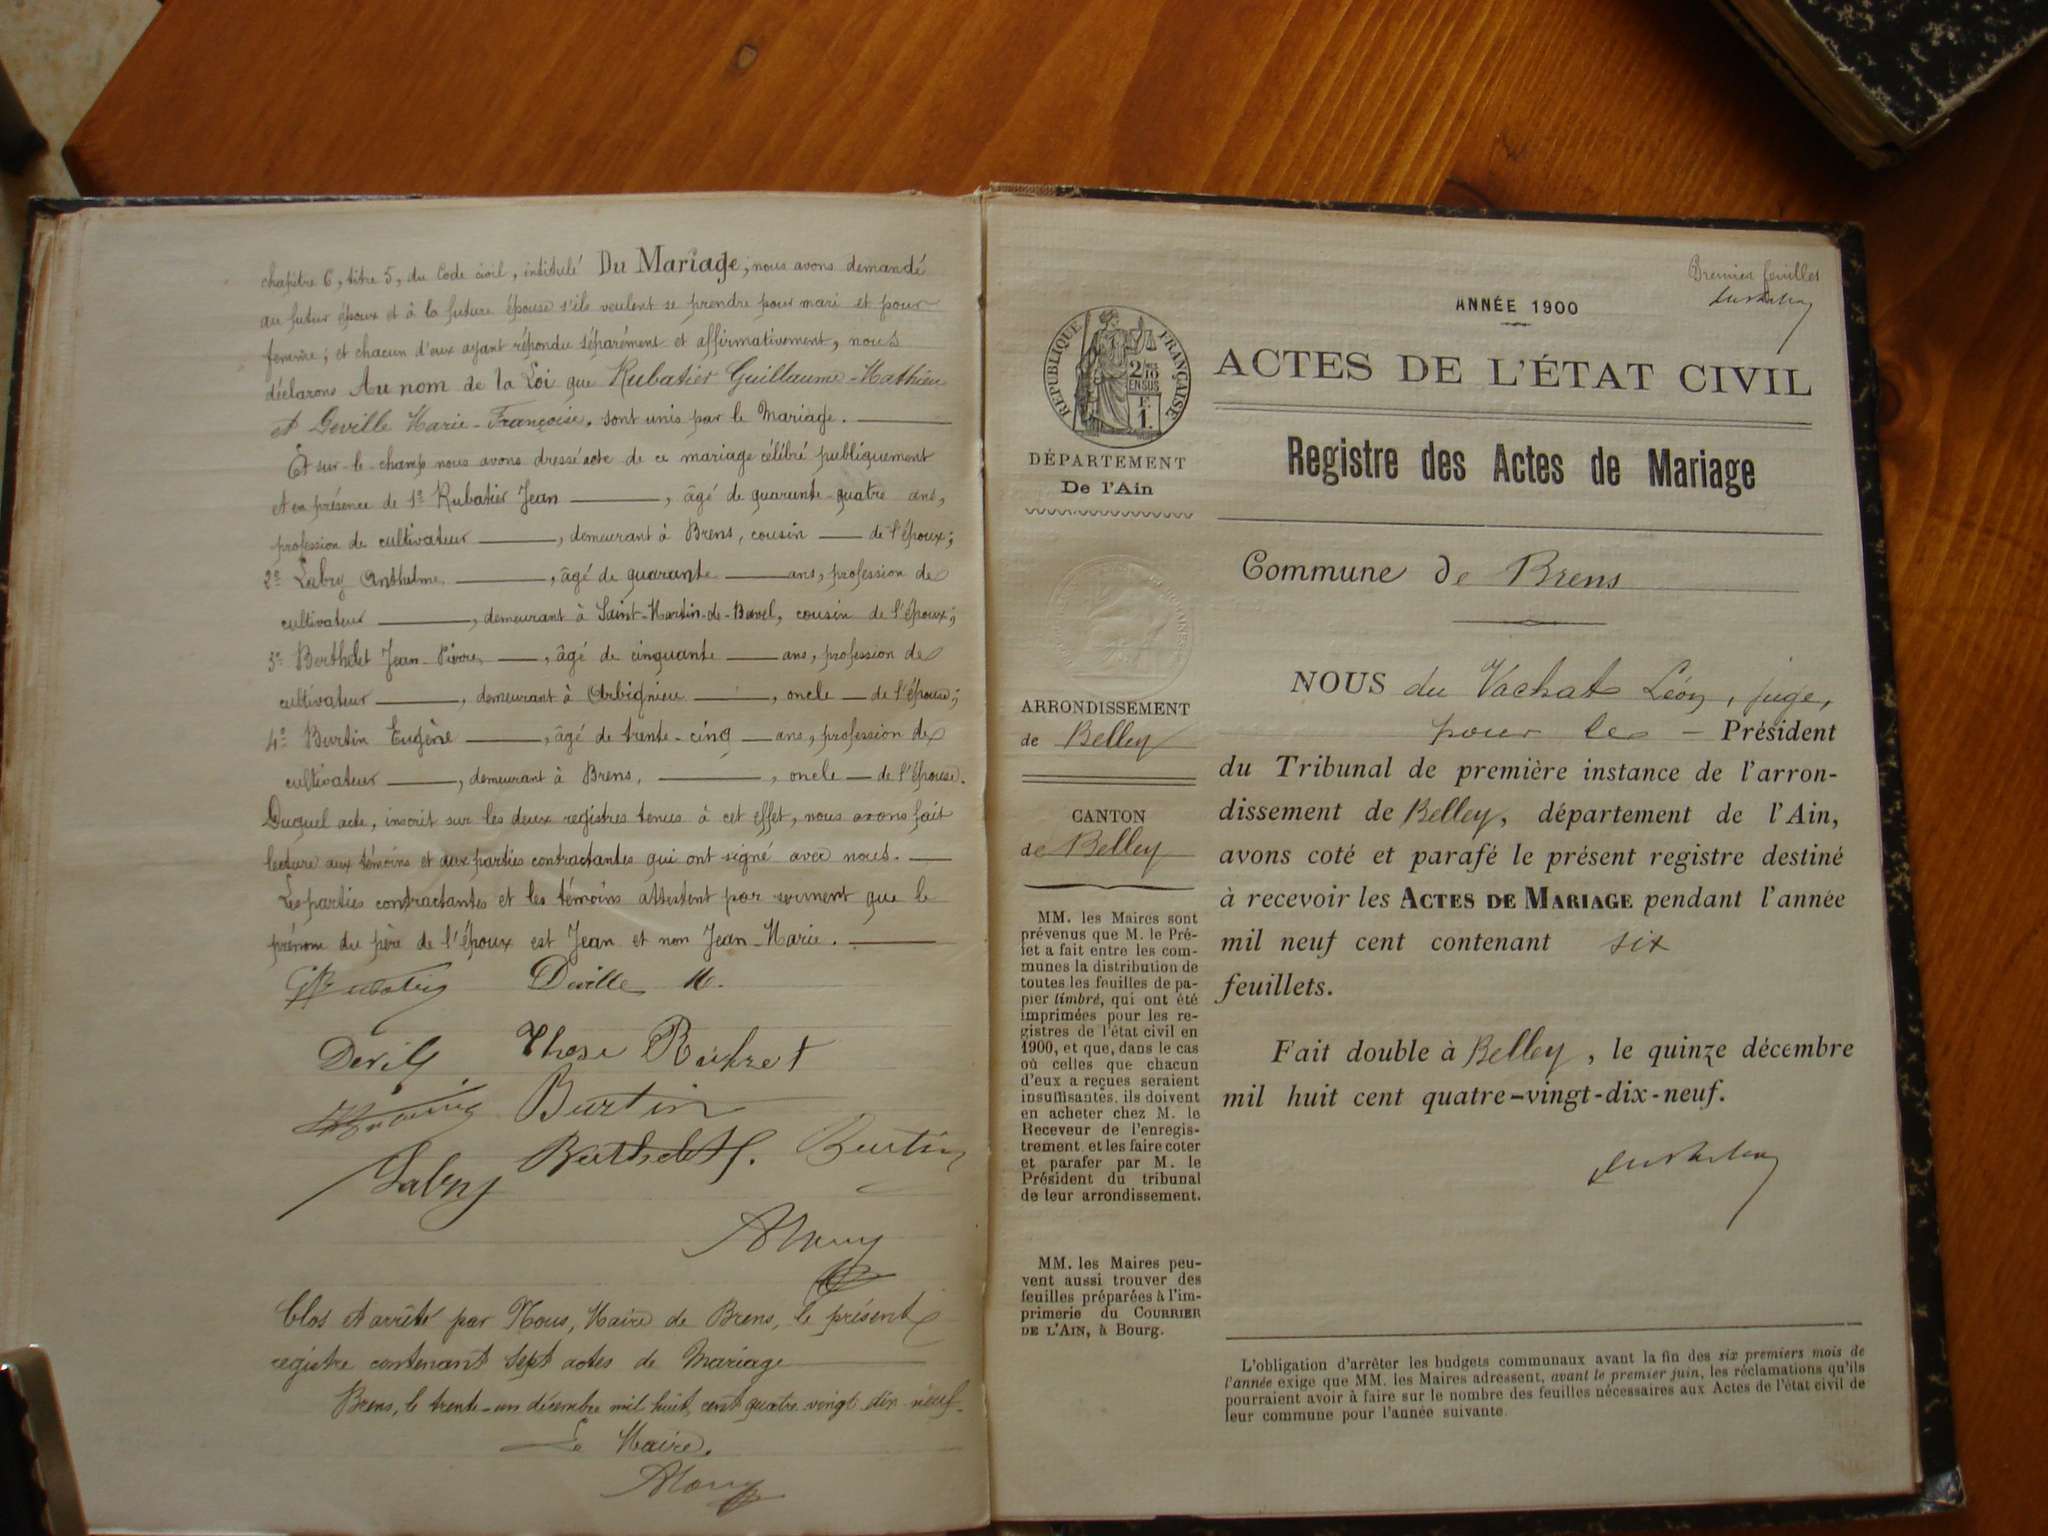 chapitre 6, titre 5, du Code civil, intitulé Du Mariage, nous avons demandé
au futur époux et à la future épouse s'ils veulent se prendre pour mari et pour
femme; et chacun d'eux ayant répondu séparément et affirmativement, nous
déclarons Au nom de la Loi que Rubatier Guillaume-Mathieu
et Deville Marie-Françoise, sont unis par le Mariage.
Et sur-le-champ nous avons dressé acte de ce mariage célébré publiquement
et en présence de 1º Rubatier Jean, âgé de quarante-quatre ans,
profession de cultivateur, demeurant à Brens, cousin de l'époux;
2º Labry Anthelme, âgé de quarante ans, profession de
cultivateur, demeurant à Saint-Martin-de-Bavel, cousin de l'époux;
3º Berthelet Jean-Pierre, âgé de cinquante ans, profession de
cultivateur, demeurant à Arbignieu, oncle de l'épouse;
4º Burtin Eugène, âgé de trente-cinq ans, profession de
cultivateur, demeurant à Brens, oncle de l'épouse.
Duquel acte, inscrit sur les deux registres tenus à cet effet, nous avons fait
lecture aux témoins et aux parties contractantes qui ont signé avec nous.
Les parties contractantes et les témoins attestent par serment que le
prénom du père de l'époux est Jean et non Jean-Marie.
Deville M.
Burtin
Labry Berthelet Burtin
Clos et arrêté par Nous, Maire de Brens, le présent
registre contenant sept actes de Mariage
Brens, le trente-un décembre mil huit cent quatre vingt dix neuf.
Le Maire,
Premier feuillet
ANNÉE 1900
RÉPUBLIQUE FRANÇAISE
2/10 EN SUS
F. 1.
ACTES DE L'ÉTAT CIVIL
Registre des Actes de Mariage
DÉPARTEMENT
De l'Ain
Commune de Brens
ARRONDISSEMENT
de Belley
CANTON
de Belley
MM. les Maires sont
prévenus que M. le Pré-
fet a fait entre les com-
munes la distribution de
toutes les feuilles de pa-
pier timbré, qui ont été
imprimées pour les re-
gistres de l'état civil en
1900, et que, dans le cas
où celles que chacun
d'eux a reçues seraient
insuffisantes, ils doivent
en acheter chez M. le
Receveur de l'enregis-
trement et les faire coter
et parafer par M. le
Président du tribunal
de leur arrondissement.
MM. les Maires peu-
vent aussi trouver des
feuilles préparées à l'im-
primerie du COURRIER
DE L'AIN, à Bourg.
NOUS du Vachat Léon, juge,
pour le Président
du Tribunal de première instance de l'arron-
dissement de Belley, département de l'Ain,
avons coté et parafé le présent registre destiné
à recevoir les ACTES DE MARIAGE pendant l'année
mil neuf cent contenant six
feuillets.
Fait double à Belley, le quinze décembre
mil huit cent quatre-vingt-dix-neuf.
L'obligation d'arrêter les budgets communaux avant la fin des six premiers mois de
l'année exige que MM. les Maires adressent, avant le premier juin, les réclamations qu'ils
pourraient avoir à faire sur le nombre des feuilles nécessaires aux Actes de l'état civil de
leur commune pour l'année suivante.